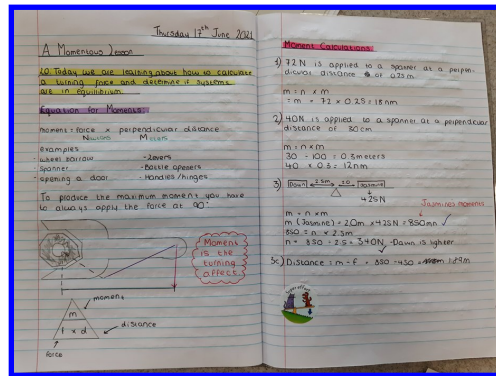 Thursday 17th June 2021
A Momentous Lesson
LO Today we are learning about how to calculate
a turning force and determine if systems
are in equilibrium.
Equation for Moments:
moment = force x perpendicular distance
Newtons Meters
examples
- wheel barrow - Levers
- spanner - Bottle openers
- opening a door - Handles/hinges
To produce the maximum moment you have
to always apply the force at 90°.
Moment
is the
turning
affect.
moment
m
f x d
distance
force
Moment Calculations
1) 72N is applied to a spanner at a perpen-
dicular distance of 0.25m
m = n x m
= m = 72 x 0.25 = 18nm
2) 40N is applied to a spanner at a perpendicular
distance of 30cm
m = n x m
30 ÷ 100 = 0.3meters
40 x 0.3 = 12nm
3) Dawn 2.5m 2.0 Jasmine
425N
Jasmines moments
m = n x m
m (Jasmine) = 2.0m x 425N = 850mn ✓
850 = n x 2.5m
n = 850 ÷ 2.5 = 340N ✓ Dawn is lighter
3c) Distance = m ÷ f = 850 ÷ 450 = 1.89m
Super effort